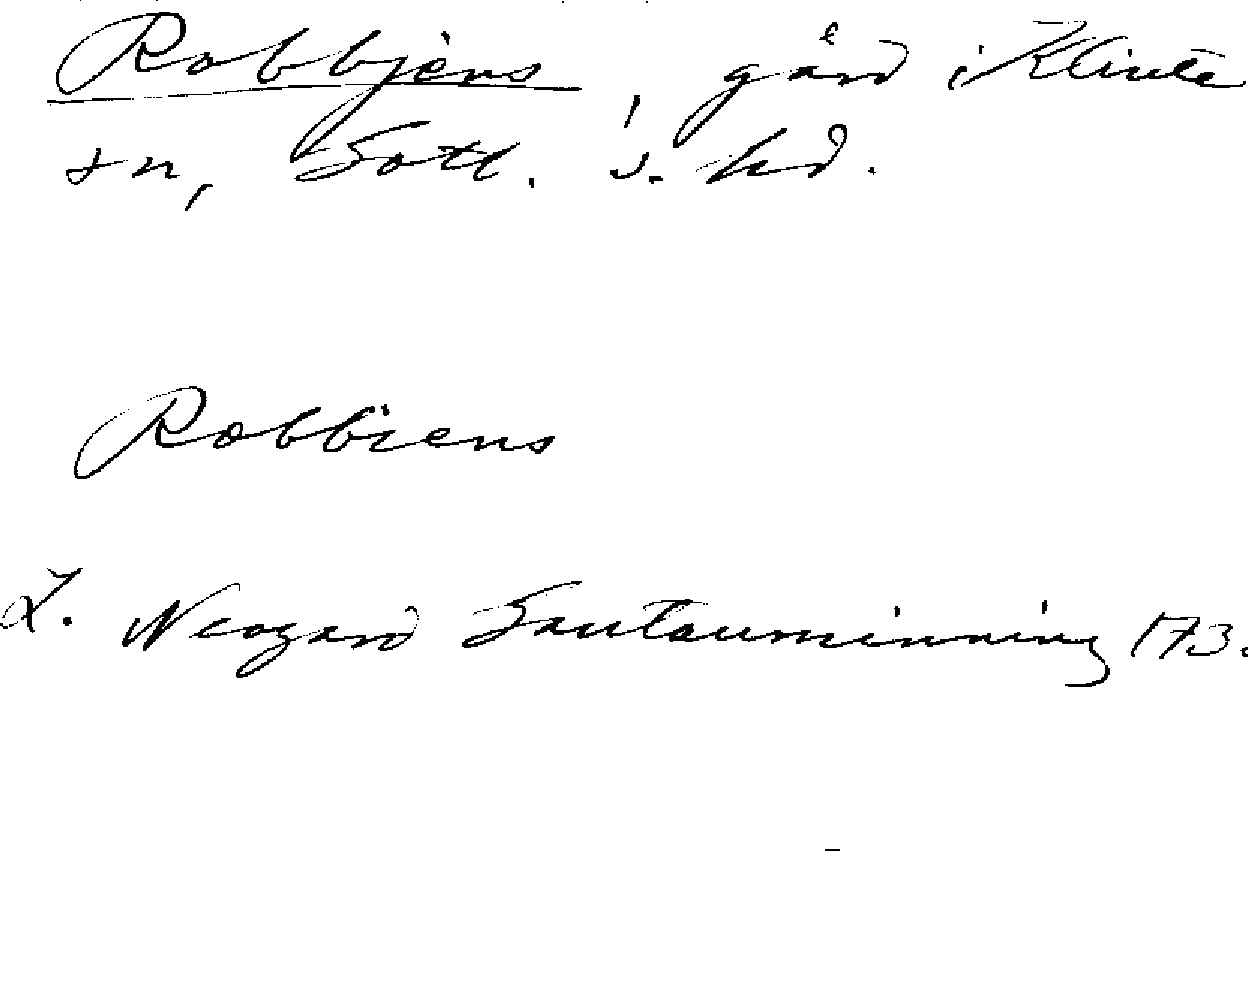 Robbjens, gård i Klinte
sn, Gotl. s. hd.
Robbiens
L. Neogard Gautauminning 173.